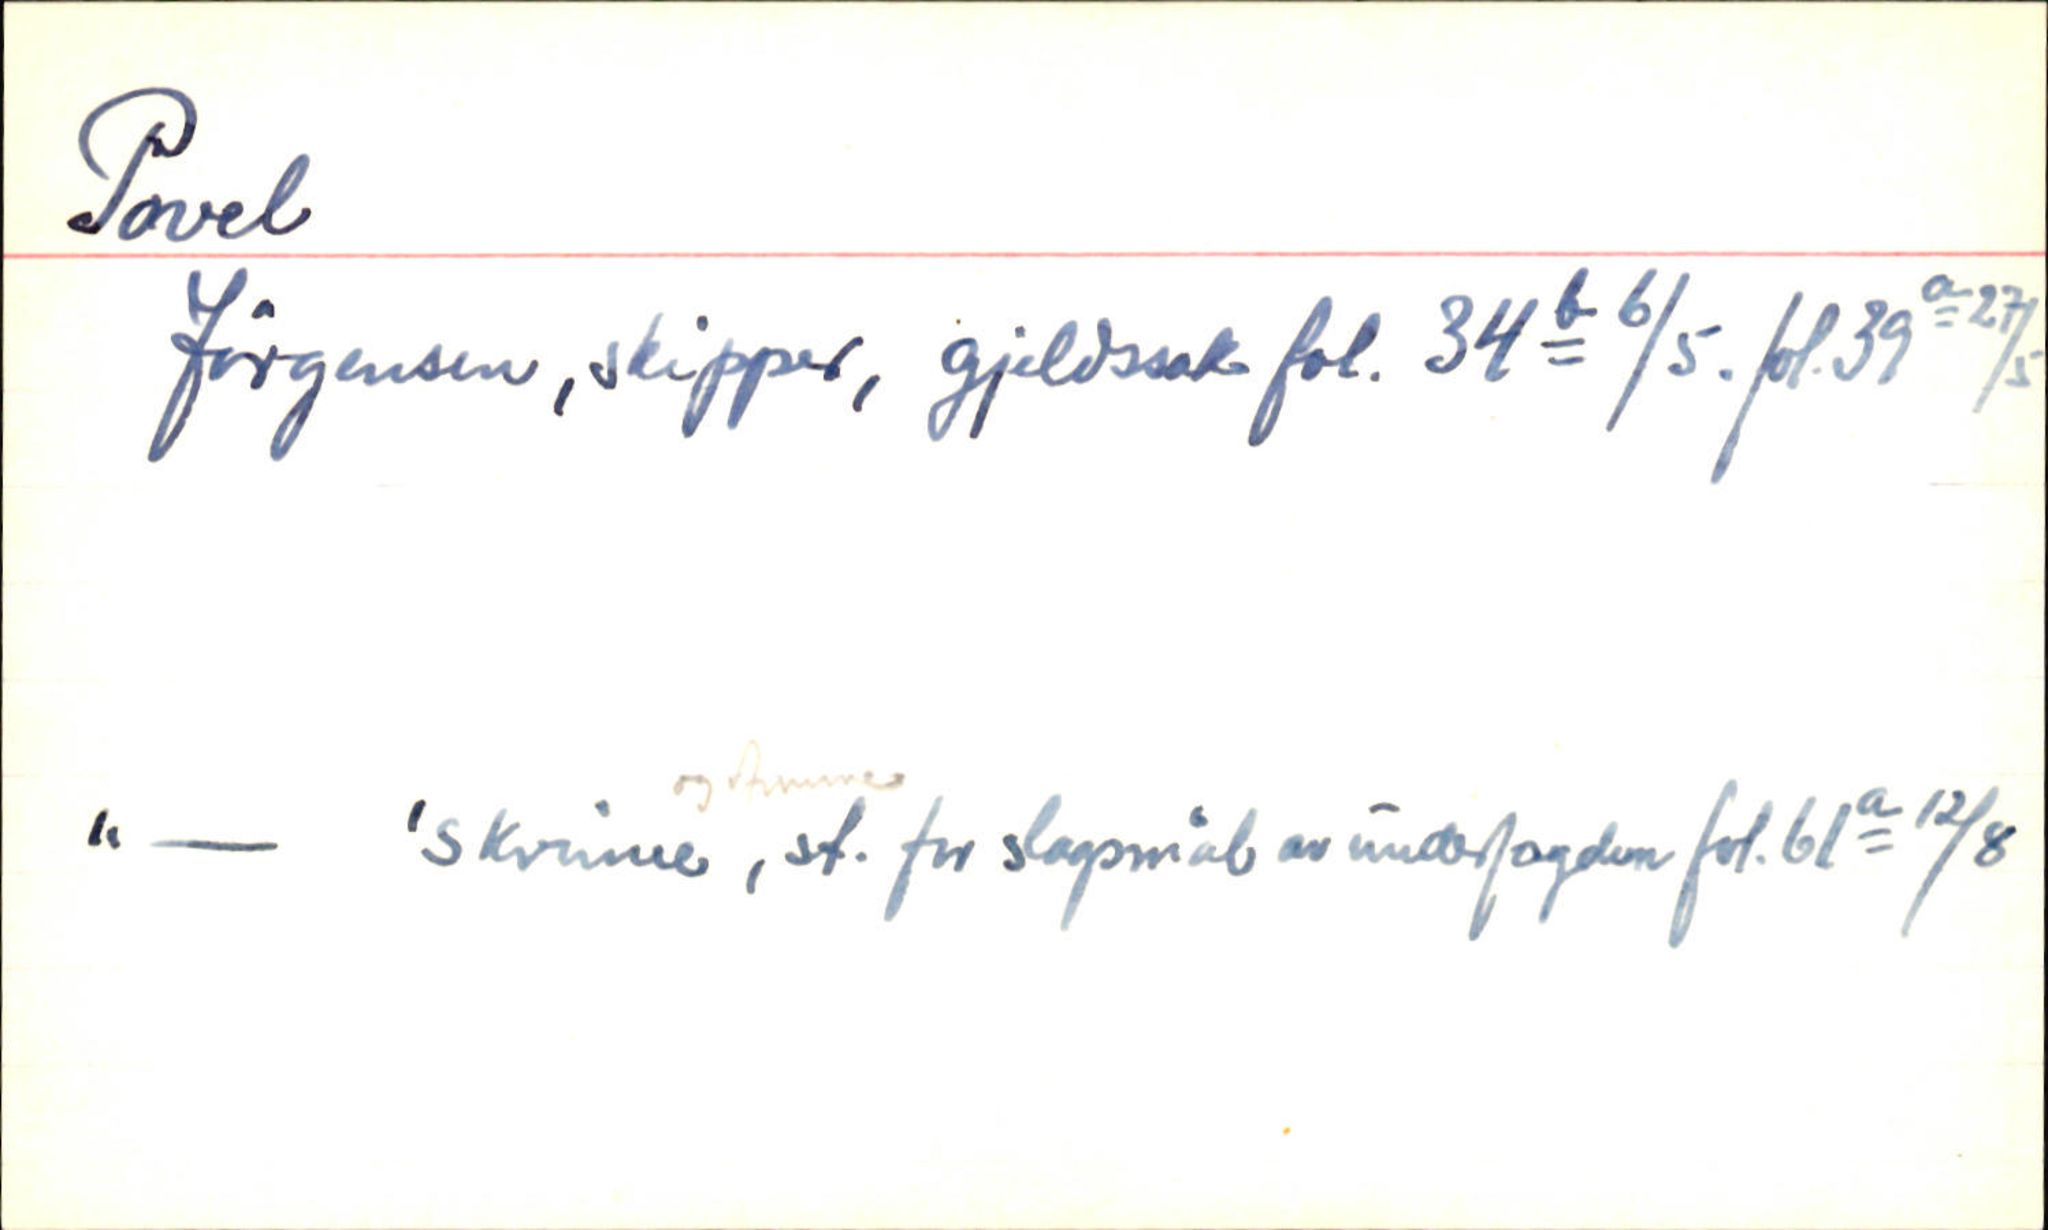 Pavel
Jörgensen, skipper, gjeldssak fol. 34b 6/5. fol. 39a 27/5
og
" — 'Skrüue, st. for slagsmål av ünderfogden fol. 61a 12/8